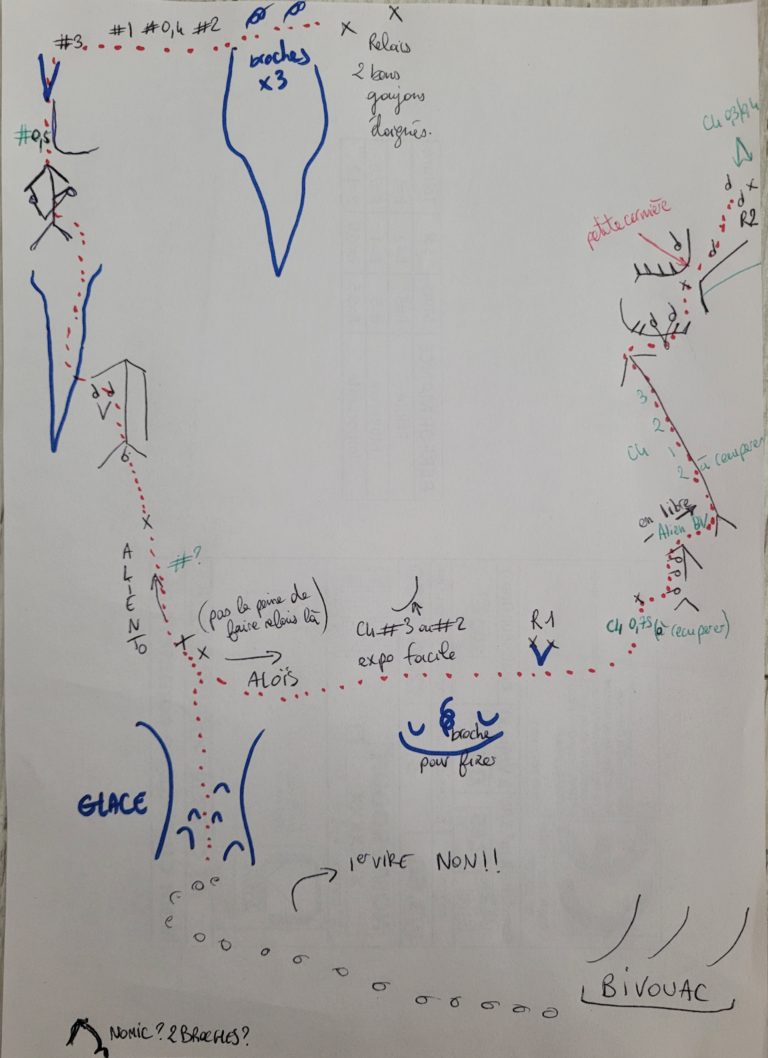 #3 #1 #0,4 #2
broches
x3
Relais
2 bons
goujons
éloignés.
#0,5
Ch 0,3/0,4
petite cornière
R2
3
2
Ch 1
2 à coupeer
en libre
Alien BV
Ch 0,75 (à recuperer)
ALIENTO
#?
(pas la peine de
faire relais là)
ALOÏS
Ch #3 ou #2
expo facile
R1
broche
pour fixer
GLACE
1er VIRE NON!!
BIVOUAC
NOMIC? 2 BROCHES?